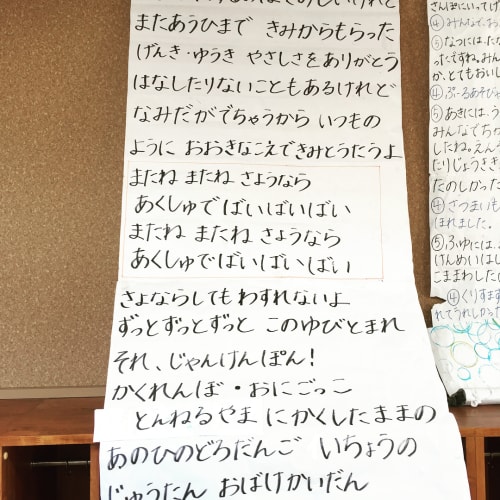 またあうひまで きみからもらった
げんき・ゆうき やさしさをありがとう
はなしたりないこともあるけれど
なみだがでちゃうから いつもの
ように おおきなこえできみとうたうよ
またね またね さようなら
あくしゅで ばいばいばい
またね またね さようなら
あくしゅでばいばいばい
さよならしても わすれないよ
ずっとずっとずっと このゆびとまれ
それ、じゃんけんぽん!
かくれんぼ・おにごっこ
とんねるやま にかくしたままの
あのひのどろだんご いちょうの
じゅうたん おばけかいだん
さんぽにいってけ
④みんなで、お
⑤なつには、たか
ったですね。みんな
か、とてもおいし
④ぷーるあそび
⑤あきには、う
みんなでちか
したね。えんそ
たりじょうさき
たのしかった
④さつまいも
ほれました。
⑤ふゆには、お
けんめいはし
こままわしたけ
④くりすます
れてうれしかった